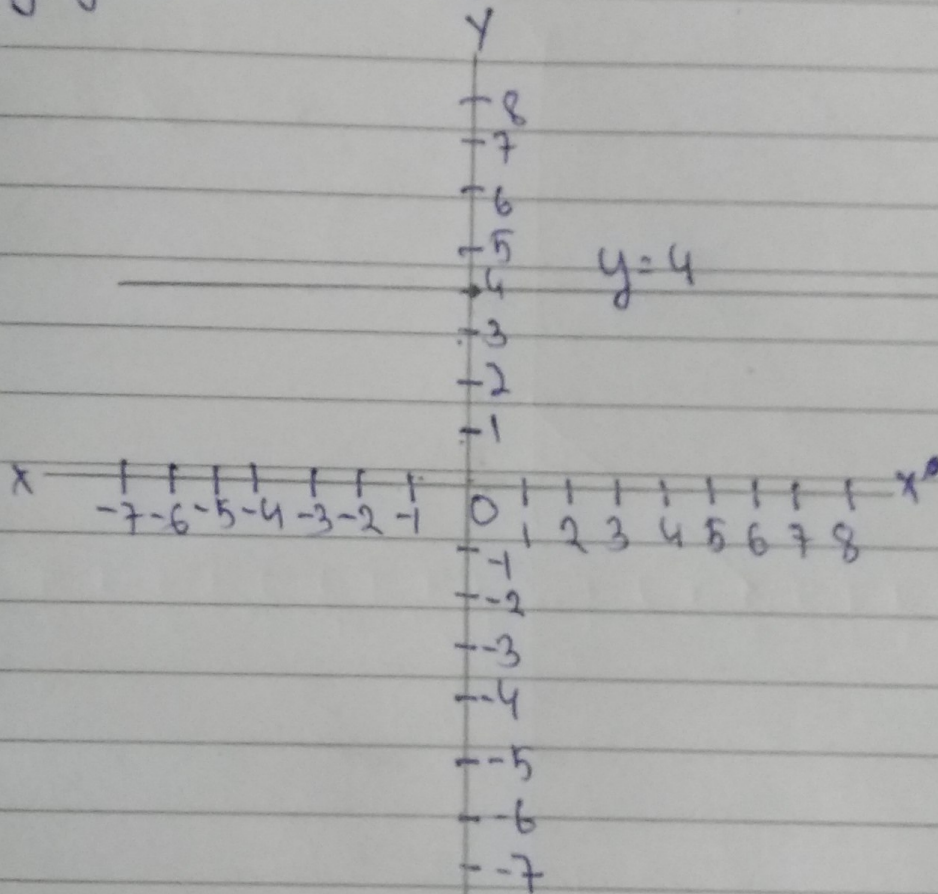 Y
8
7
6
5
y = 4
4
3
2
1
X -7 -6 -5 -4 -3 -2 -1 0 1 2 3 4 5 6 7 8 X'
-1
-2
-3
-4
-5
-6
-7